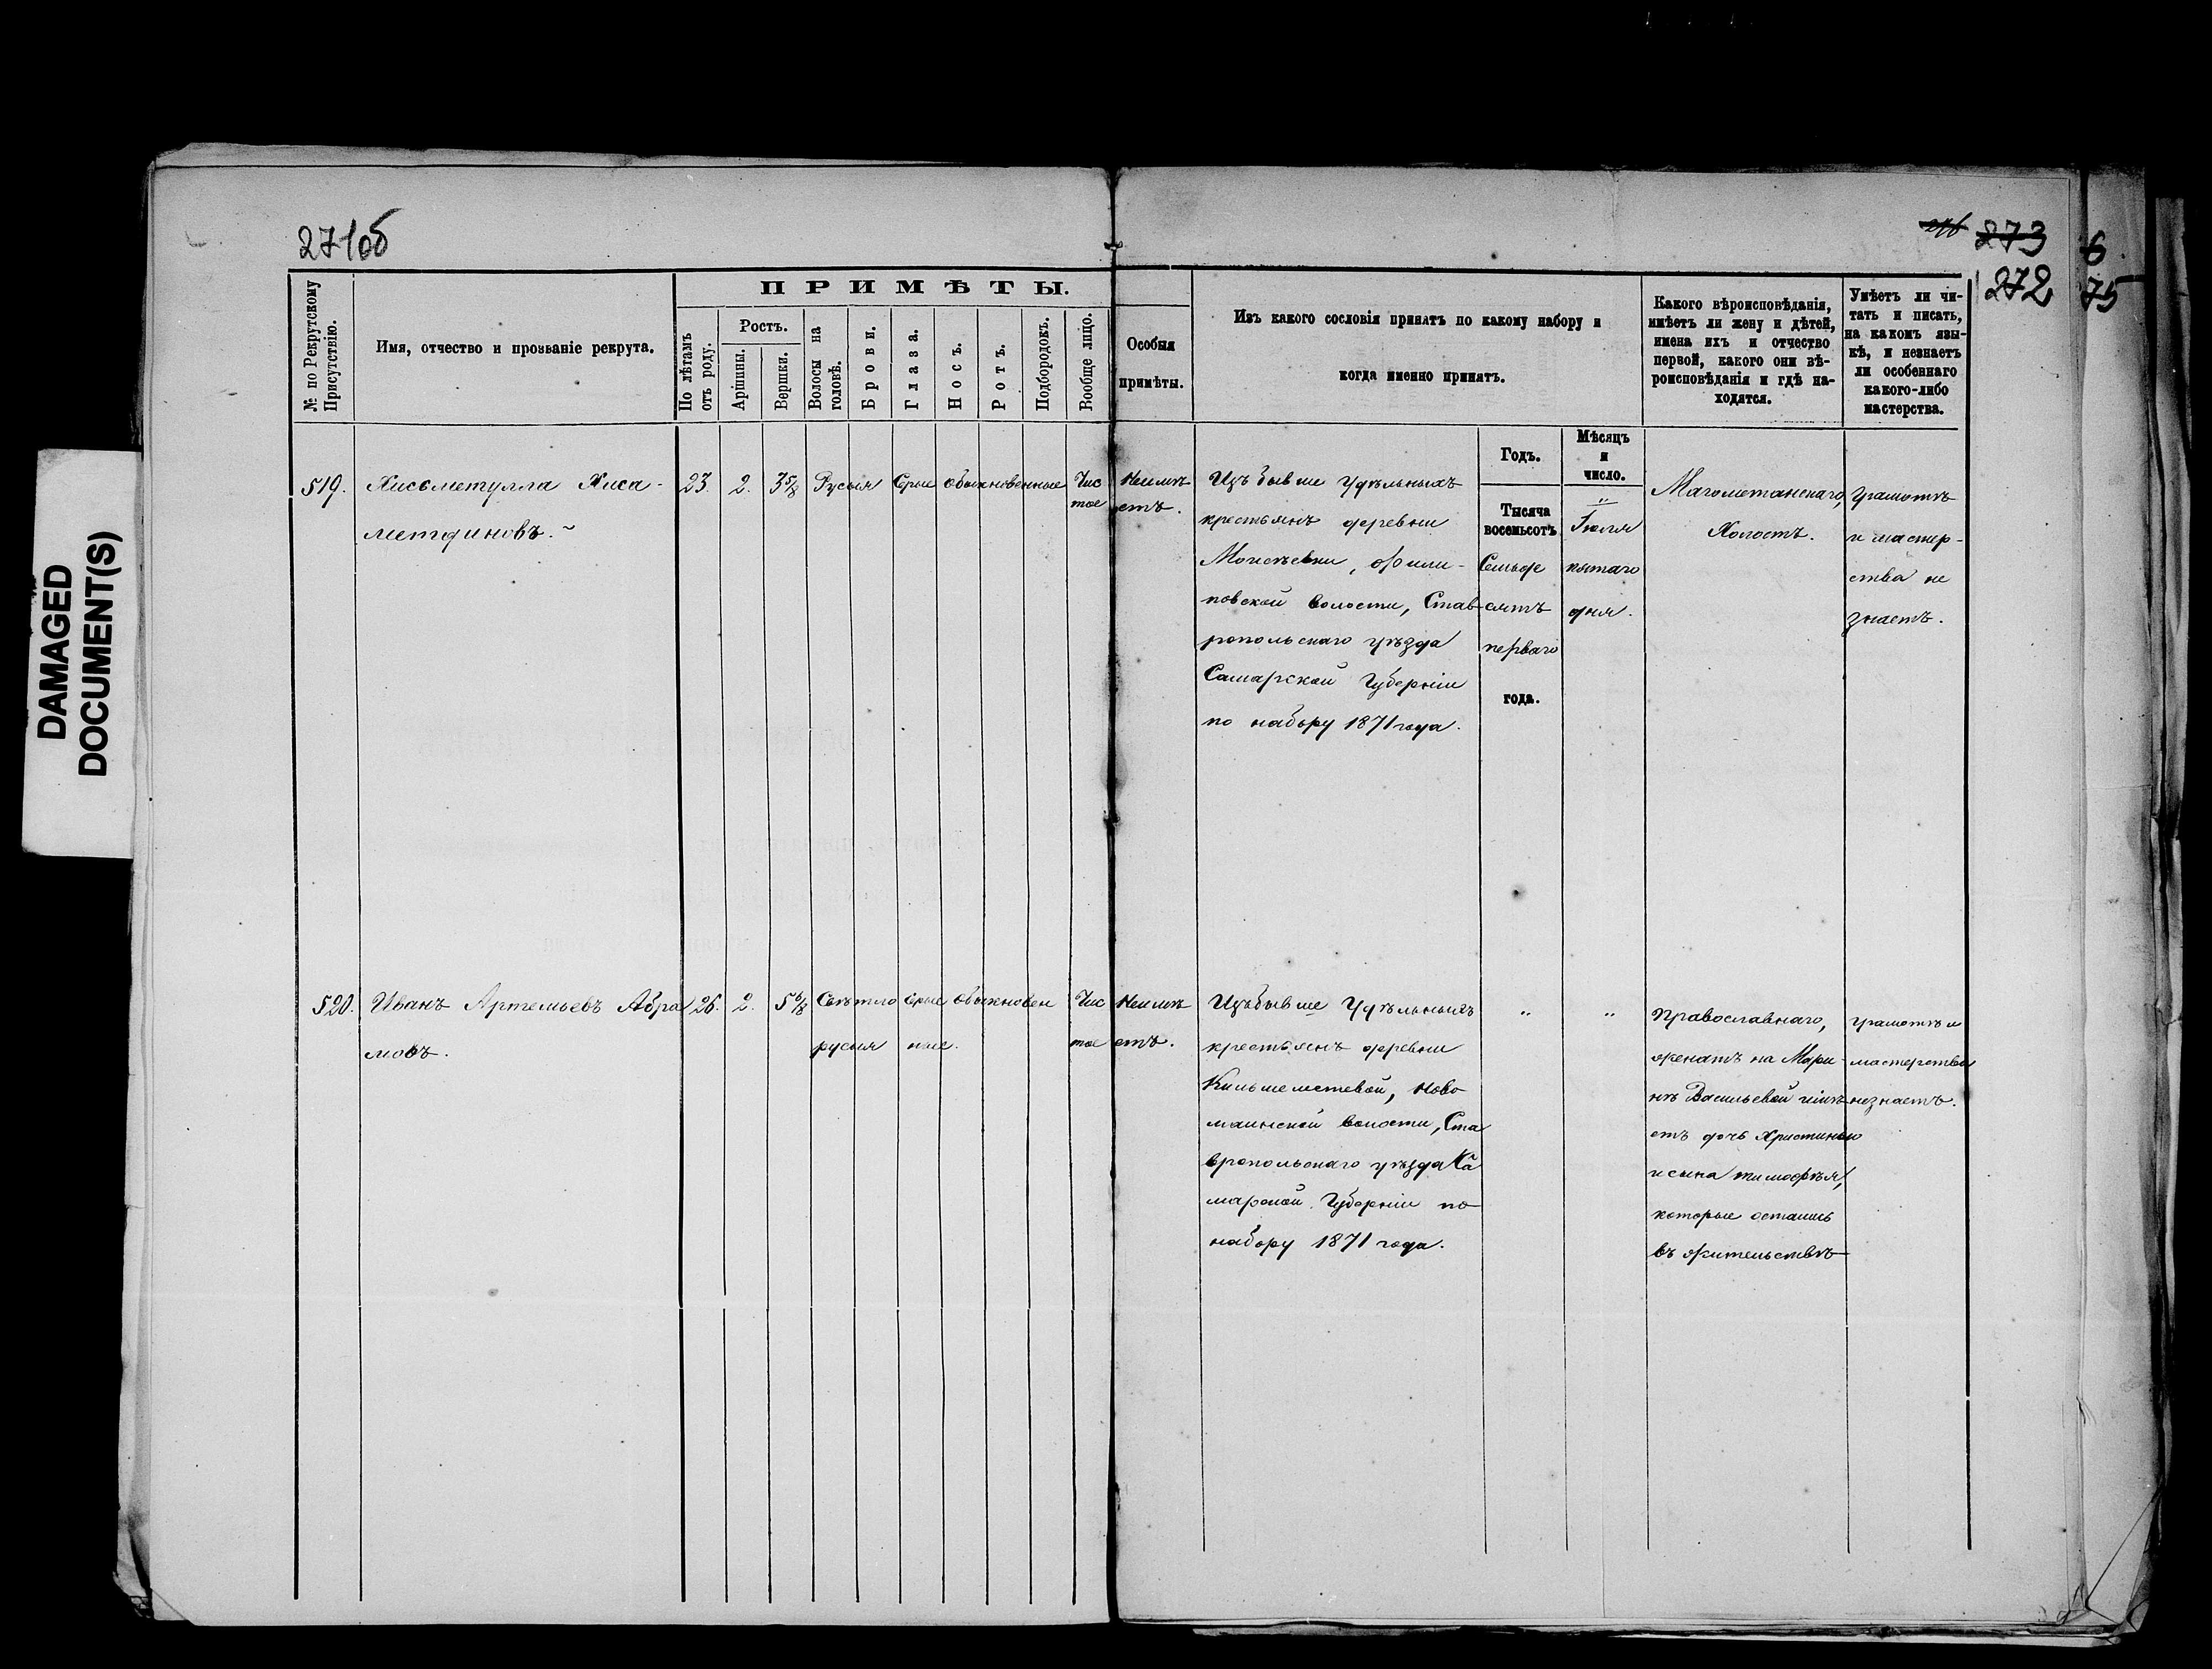 DAMAGED
DOCUMENT(S)
271об
273
272
6
75
№ по Рекрутскому
Присутствію.
Имя, отчество и прозваніе рекрута.
ПРИМѢТЫ.
По лѣтамъ
отъ роду.
Ростъ.
Аршины.
Вершки.
Волосы на
головѣ.
Брови.
Глаза.
Носъ.
Ротъ.
Подбородокъ.
Вообще лицо.
Особыя
примѣты.
Изъ какого сословія принятъ по какому набору и
когда именно принятъ.
Какого вѣроисповѣданія,
имѣетъ ли жену и дѣтей,
имена ихъ и отчество
первой, какого они вѣ-
роисповѣданія и гдѣ на-
ходятся.
Умѣетъ ли чи-
тать и писать,
на какомъ язы-
кѣ, и незнаетъ
ли особеннаго
какого-либо
мастерства.
Годъ.
Мѣсяцъ
и
число.
519.
Хисьметулла Хиса-
метдиновъ.
23.
2.
3 5/8
Русыя
Срые
обыкновенные
Чис
тое
Неимѣ
етъ.
Изъ бывше Удѣльныхъ
крестьянъ деревни
Моисѣевки, Фили-
повской волости, Став-
ропольскаго уѣзда
Самарской Губерніи
по набору 1871 года.
Тысяча
восемьсотъ
Семьде
сятъ
перваго
года.
"
Іюля
пятаго
дня.
Магометанскаго,
Холостъ.
грамотѣ
и мастер-
ства не
знаетъ.
520.
Иванъ Артемьевъ Абра
мовъ.
26.
2.
5 6/8
Свѣтло
русыя
срые
обыкновен
ные.
Чис
тое
Неимѣ
етъ.
Изъ бывше Удѣльныхъ
крестьянъ деревни
Кильшеметевой, Ново
маинской волости, Ста
вропольскаго уѣзда Са
марской Губерніи по
набору 1871 года.
"
"
Православнаго,
женатъ на Мари-
нѣ Васильевой имѣ
етъ дочь Христинью
и сына тимофѣя,
которые остались
въ жительствѣ
грамотѣ и
мастерства
незнаетъ.